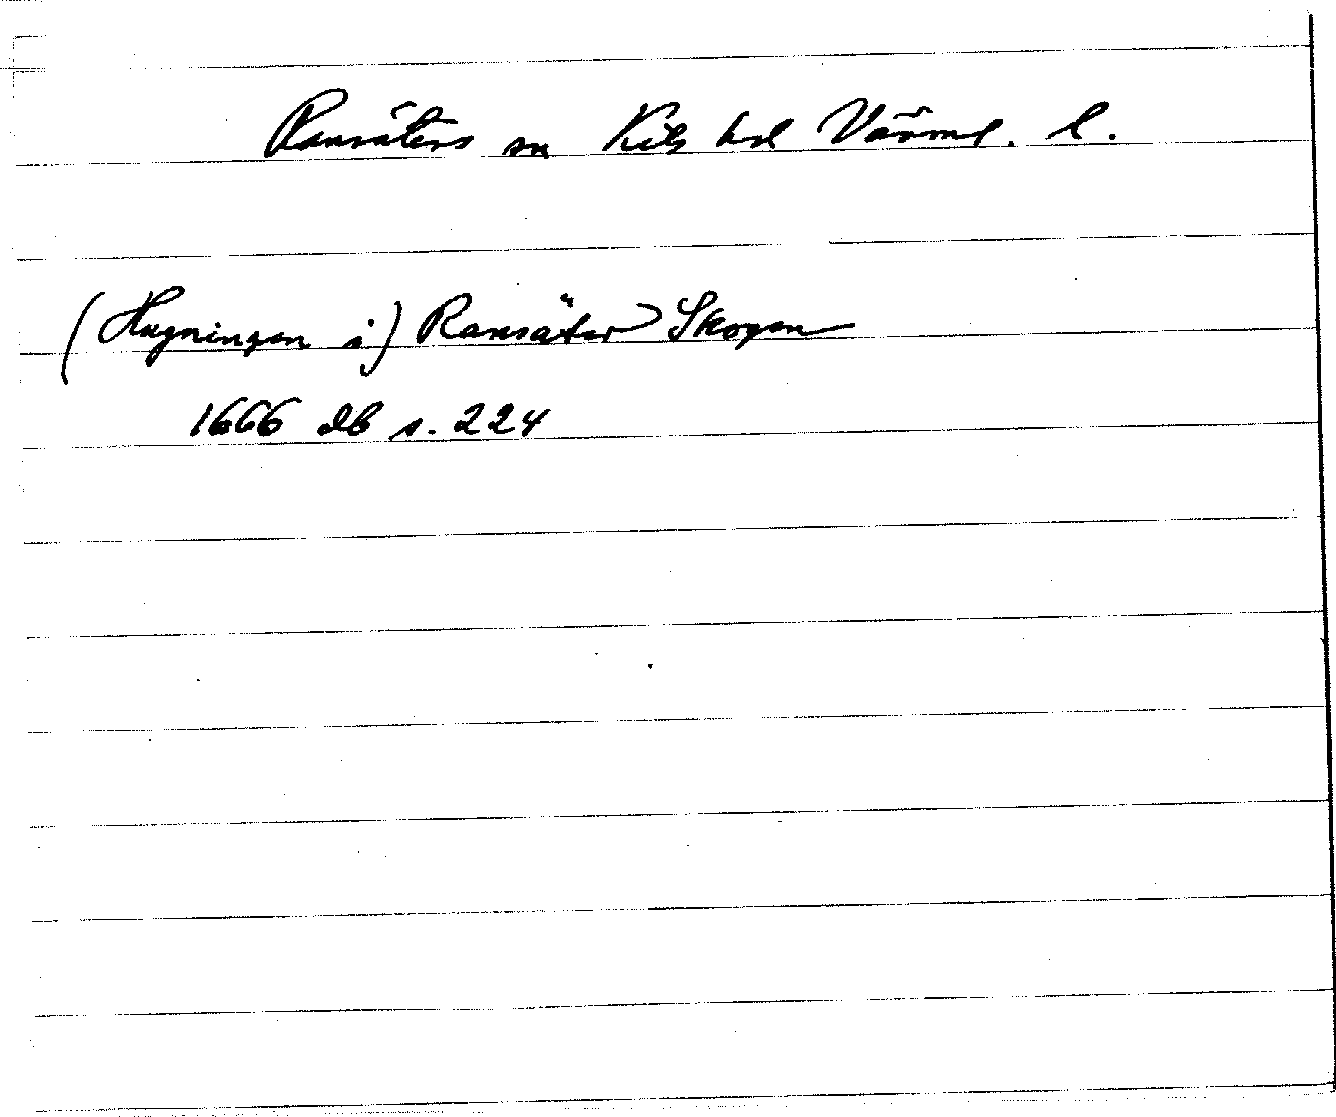 Ransäters sn Kils hd Värml. l.
(Hugningen i) Ransäter Skogen
1666 db s. 224